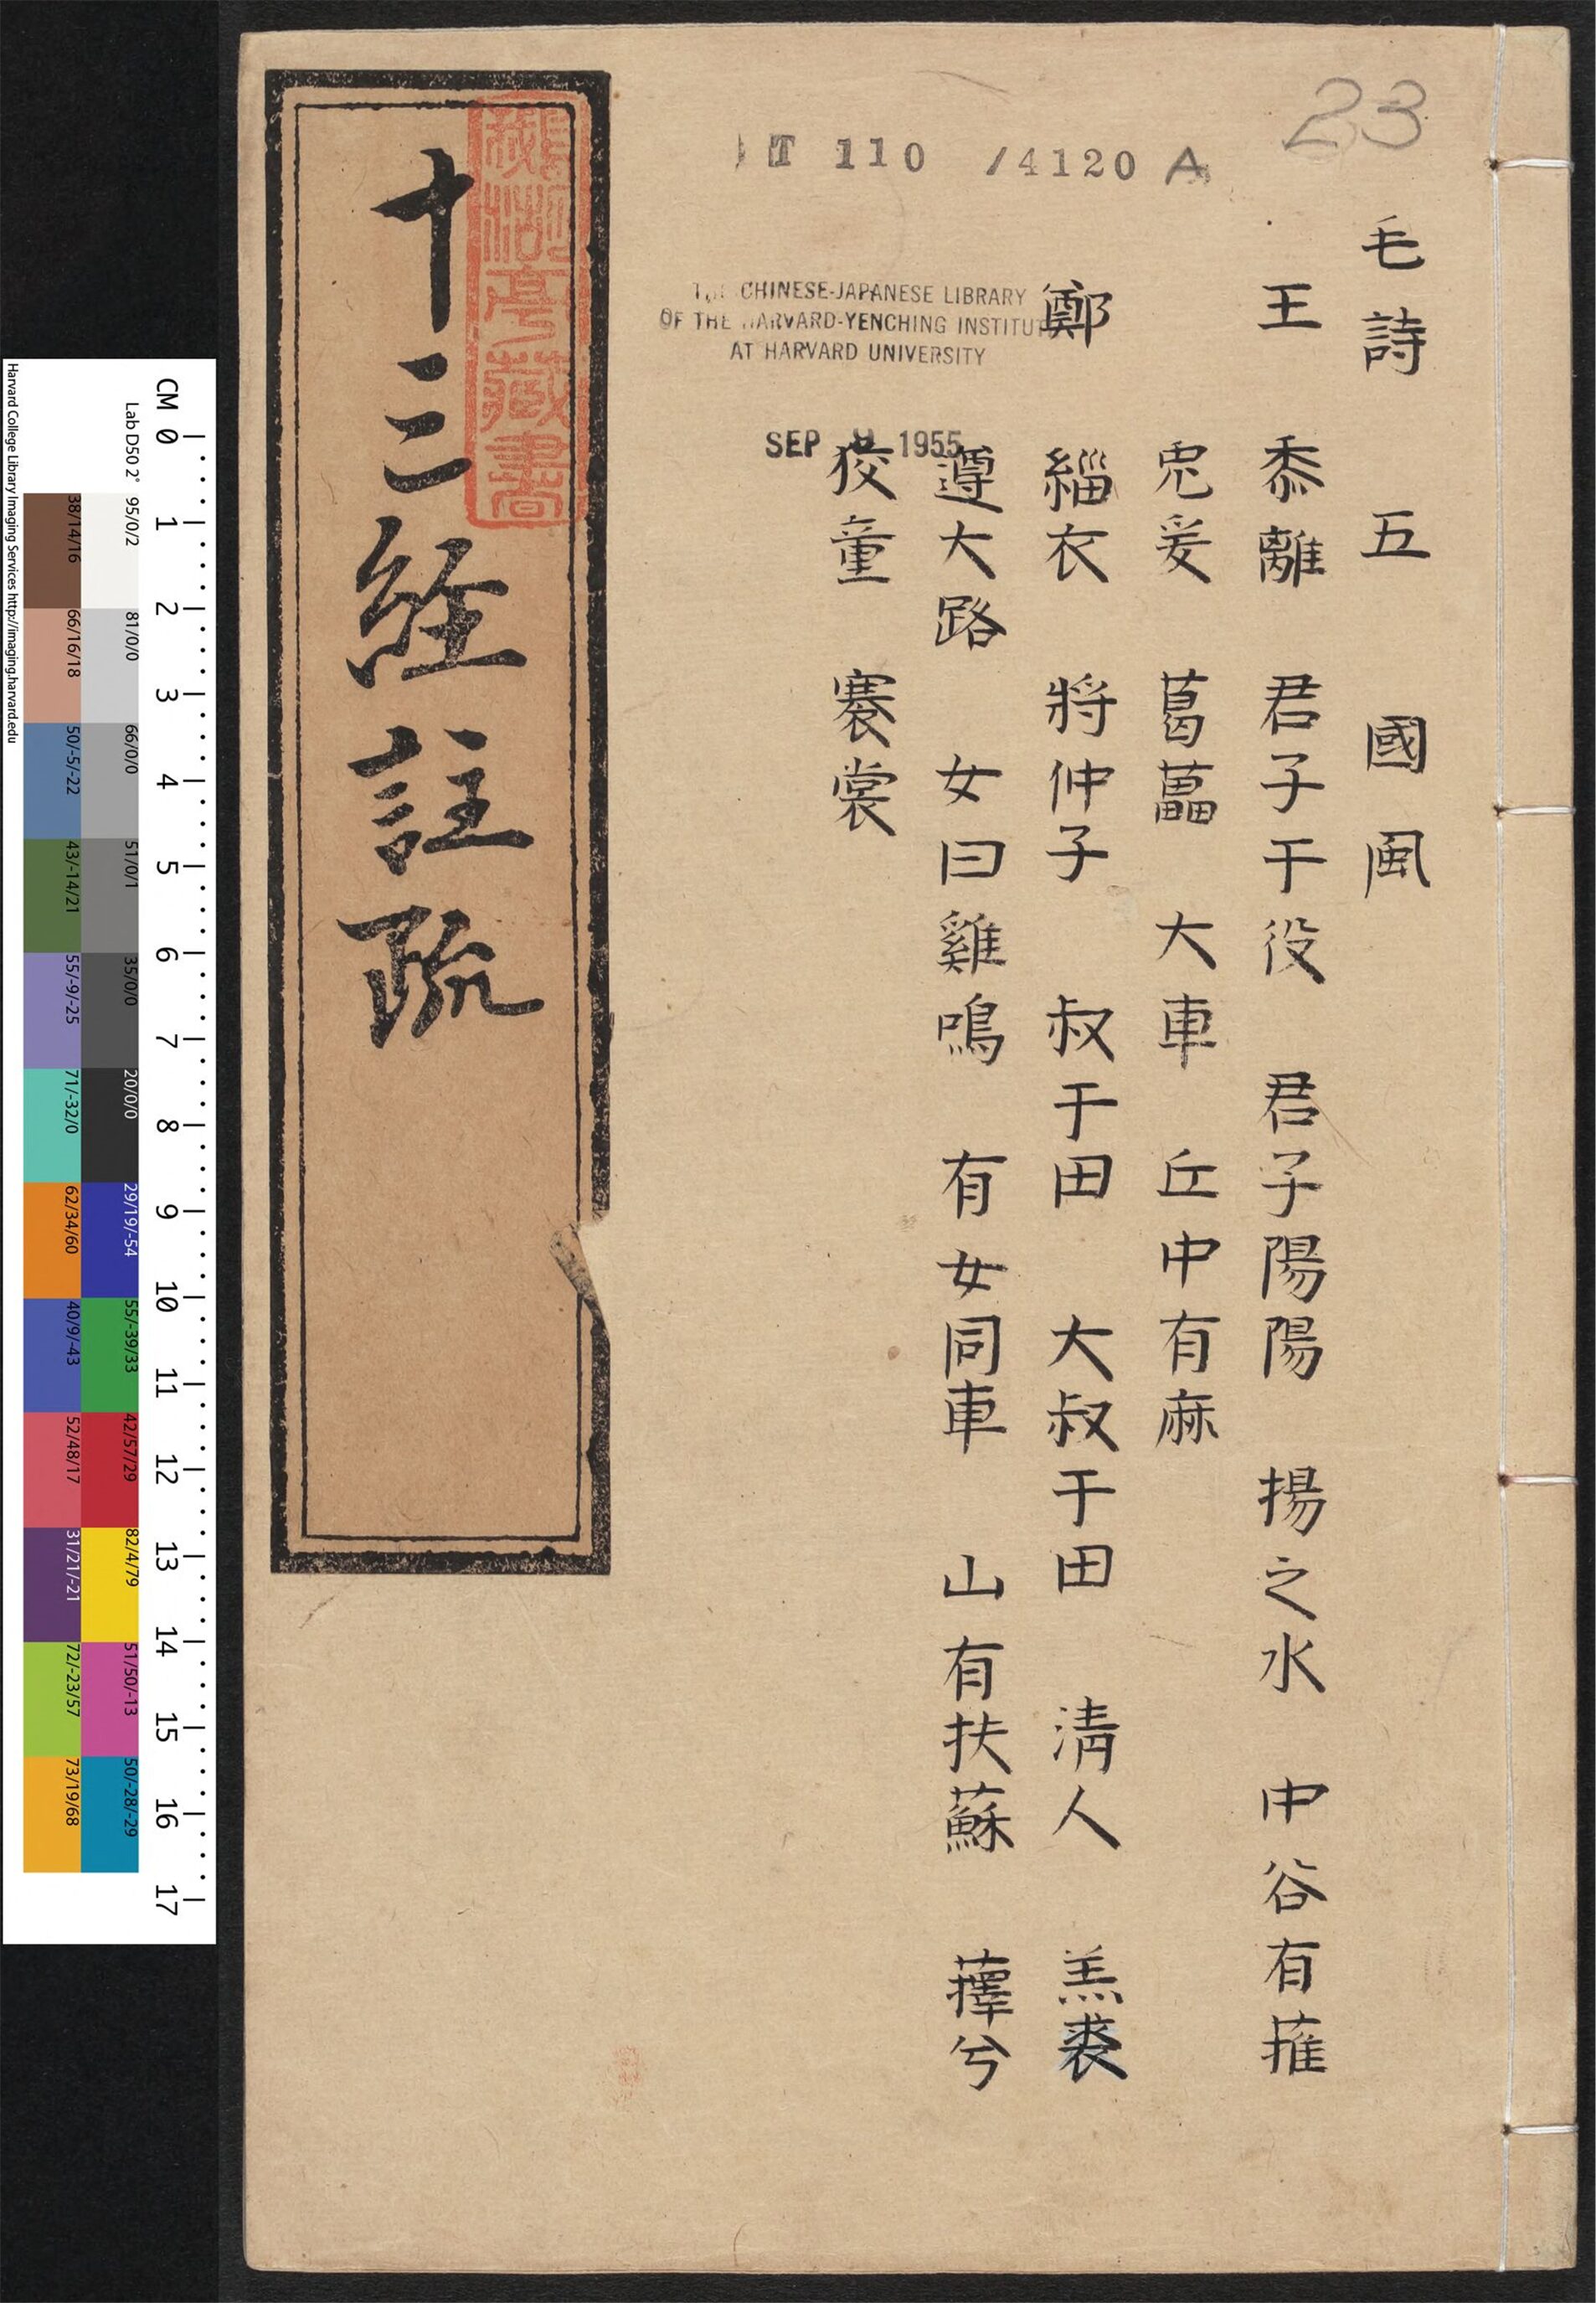 23
T 110 /4120 A
毛詩 五 國風
王 黍離 君子于役 君子陽陽 揚之水 中谷有蓷
兎爰 葛藟 大車 丘中有麻
鄭 緇衣 將仲子 叔于田 大叔于田 清人 羔裘
遵大路 女曰雞鳴 有女同車 山有扶蘇 蘀兮
狡童 褰裳
THE CHINESE-JAPANESE LIBRARY
OF THE HARVARD-YENCHING INSTITUTE
AT HARVARD UNIVERSITY
SEP 1955
十三経註疏
藏書
CM 0 1 2 3 4 5 6 7 8 9 10 11 12 13 14 15 16 17
Lab D50 2° 95/0/2 81/0/0 66/0/0 51/0/1 35/0/0 20/0/0 29/19/-54 55/-39/33 42/57/29 82/4/79 51/50/-13 50/-28/-29
38/14/16 66/16/18 50/-5/-22 43/-14/21 55/-9/-25 71/-32/0 62/34/60 40/9/-43 52/48/17 31/21/-21 72/-23/57 73/19/68
Harvard College Library Imaging Services http://imaging.harvard.edu